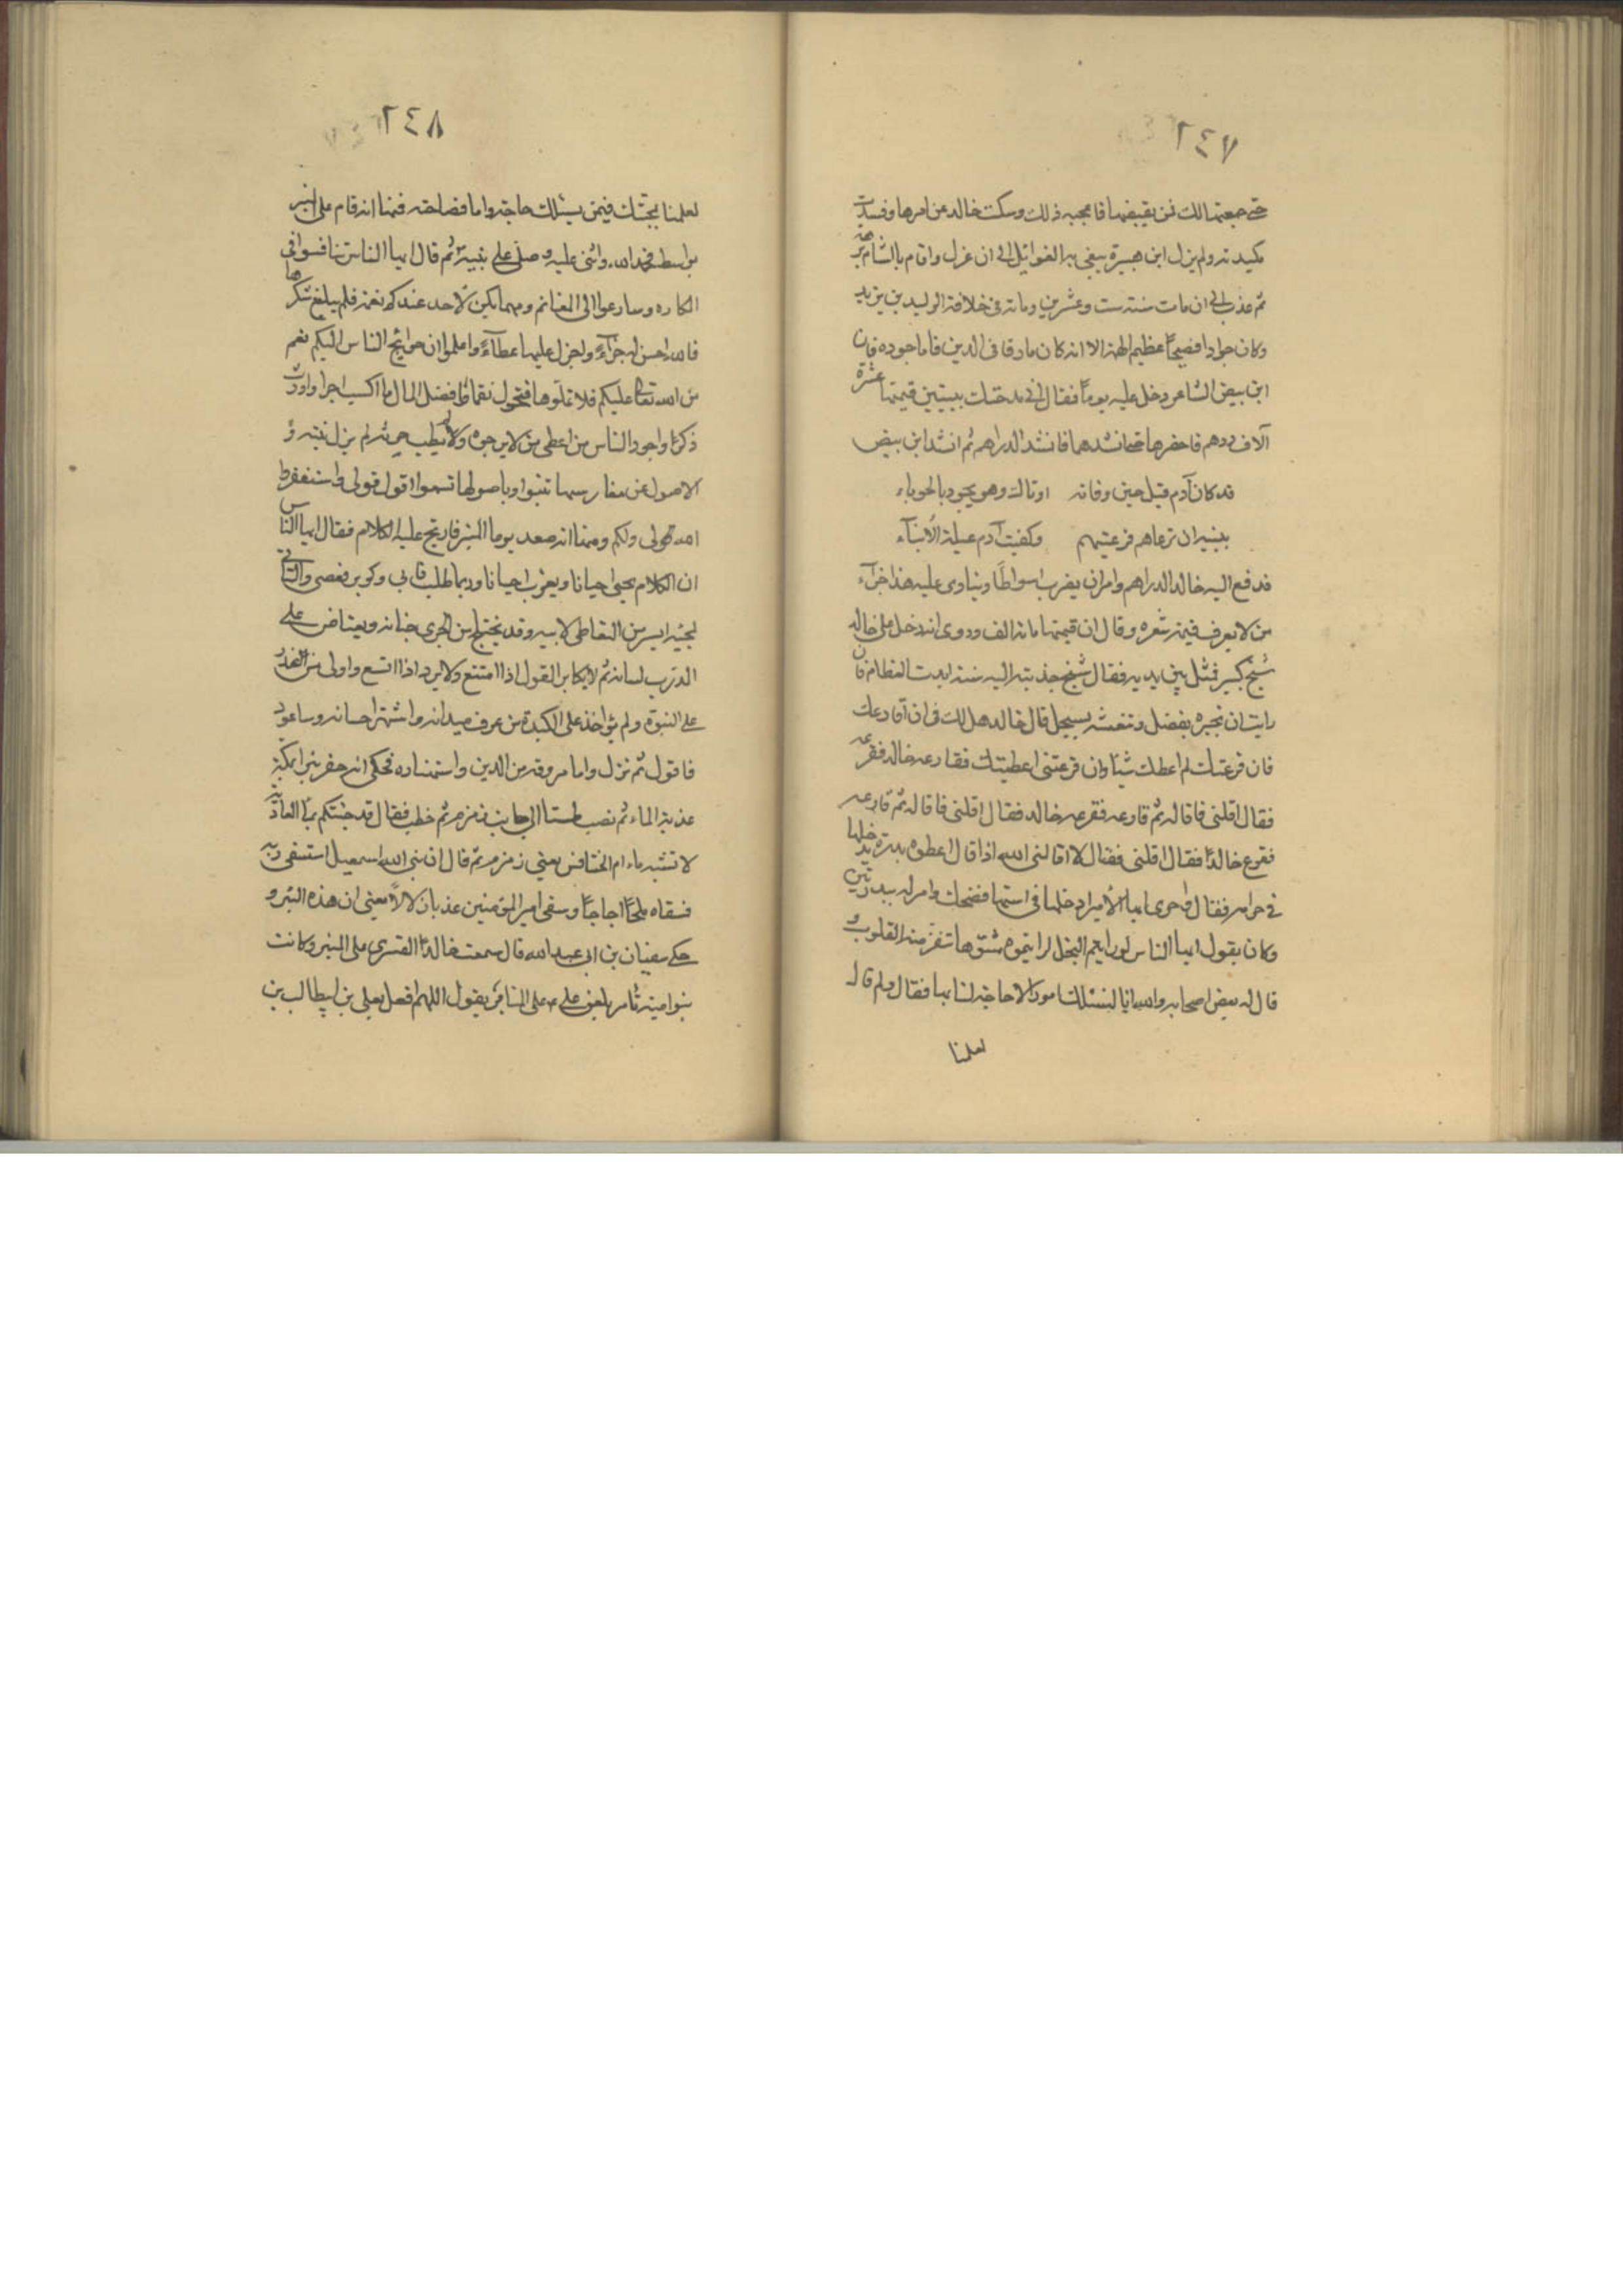 ٢٤٧
حتى جمعتها لك فمن يقبضها فاعجبه ذلك وسكت خالد عن امرها وفسدت
مكيدته ولم يزل ابن هبيرة يبغي به الغوائل الى ان عزل واقام بالشام
ثم عذب الى ان مات سنة ست وعشرين ومائة في خلافة الوليد بن يزيد
وكان جوادا فصيحًا عظيم الهمة الا انه كان مارقا في الدين فاما جوده فان
ابن بيض الشاعر دخل عليه يومًا فقال اني مدحتك ببيتين قيمتهما عشرة
آلاف درهم فاحضرها حتى انشدهما فانشد الدراهم ثم انشد ابن بيض
قد كان آدم قبل حين وفاته اوصاك وهو يجود بالحوباء
ببنيه ان ترعاهم فرعيتهم وكفيت آدم عيلة الأبناء
فدفع اليه خالد الدراهم وامر ان يضرب اسواطًا وينادى عليه هذا جزآء
من لا يعرف قيمة شعره وقال ان قيمتها مائة الف وروى انه دخل على خالد
شيخ كبير فمثل بين يديه فقال شيخ جذبته اليه سنة ابدت العظام فان
رايت ان تجبره بفضل وتنعشه بسجل قال خالد هل لك في ان اقارعك
فان قرعتك لم اعطك شيئًا وان قرعتني اعطيتك فقارعه خالد فقرعه
فقال اقلني فاقاله ثم قارعه فقرعه خالد فقال اقلني فاقاله ثم قارعه
فقرع خالدًا فقال اقلني فقال لا اقالني الله اذا قال اعطوه بدرة يدخلها
في حرامه فقال واخرى ايها الأمير ادخلها في استها فضحك وامر له ببدرتين
وكان يقول ايها الناس لو رايتم البخل لرايتموه مشوّها تنفر منه القلوب و
قال له بعض اصحابه والله انا لنسئلك امورا لا حاجة لنا بها فقال ولم قال
لعلمنا
٢٤٨
لعلمنا بمحبتك فيمن يسئلك حاجة واما فصاحته فمنها انه قام على المنبر
بواسط فحمد الله واثنى عليه وصلى على نبيه ثم قال ايها الناس تنافسوا في
المكاره وسارعوا الى المغانم ومهما يكن لأحد عندكم نعمة فلم يبلغ شكرها
فالله احسن له جزآءً واجزل عليها عطآءً واعلموا ان حوائج الناس اليكم نعم
من الله تعالى عليكم فلا تملّوها فتحول نقمًا وافضل المال ما اكسب اجرا واورث
ذكرًا واجود الناس من اعطى من لا يرجوه ولم يطب حرثه لم يزل نبته و
الاصول عن مغارسها تنبوا وباصولها تسموا اقول قولي واستغفر
الله لي ولكم ومنها انه صعد يوما المنبر فارتج عليه الكلام فقال ايها الناس
ان الكلام يجيئ احيانا ويعزب احيانا وربما طلب فابى وكوبر فعصى والتاني
لمجيئه ايسر من التعاطي لابيه وقد يختلج من الجرى جنانه ويعتاض على
الذرب لسانه ثم لا يكابر القول اذا امتنع ولا يرد اذا اتسع واولى من اعذر
على النبوة ولم يؤاخذ على الكبوة من عرف ميدانه واشتهر احسانه وساعود
فاقول ثم نزل واما مروقه من الدين واستهتاره فحكي انه حفر بئرا بمكة
عذبة الماء ثم نصب طستا الى جانب زمزم ثم خطب فقال قد جئتكم بماء العاذبة
لا تشبه ماء ام الخنافس يعني زمزم ثم قال ان نبي الله اسمعيل استسقى ربه
فسقاه ملحًا اجاجًا وسقى امير المؤمنين عذبا زلالاً يعني ان هذه البئر و
حكى سفيان بن ابي عبد الله قال سمعت خالدًا القسري على المنبر وكانت
بنو امية تأمر بلعن علي ع على المنابر يقول اللهم افعل بعلي بن ابيطالب بن